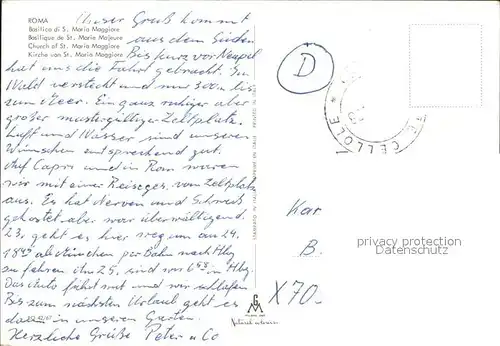 ROMA
Basilica di S. Maria Maggiore
Basilique de St. Marie Majeure
Church of St. Maria Maggiore
Kirche von St. Maria Maggiore
Unser Gruß kommt
aus dem Süden
Bis kurz vor Neapel
hat uns die Fahrt gebracht. Im
Wald versteckt und nur 300 m bis
zum Meer. Ein ganz ruhiger aber
großer mustergültiger Zeltplatz.
Luft und Wasser sind unseren
Wünschen entsprechend gut.
Auf Capri und in Rom waren
wir mit einer Reiseges. vom Zeltplatz
aus. Es hat Nerven und Schweiß
gekostet aber war überwältigend.
23. geht es hier weg um am 24.
ab München per Bahn nach Hbg
zu fahren. Am 25. sind wir in Hbg.
Das Auto fährt mit und wir schlafen
Bis zum nächsten Urlaub geht es
dann in unseren Garten.
Herzliche Grüße Peter u Co
D
CELLOLE
Kar
B.
X70.-
privacy protection
OldthingAnsichtskarten